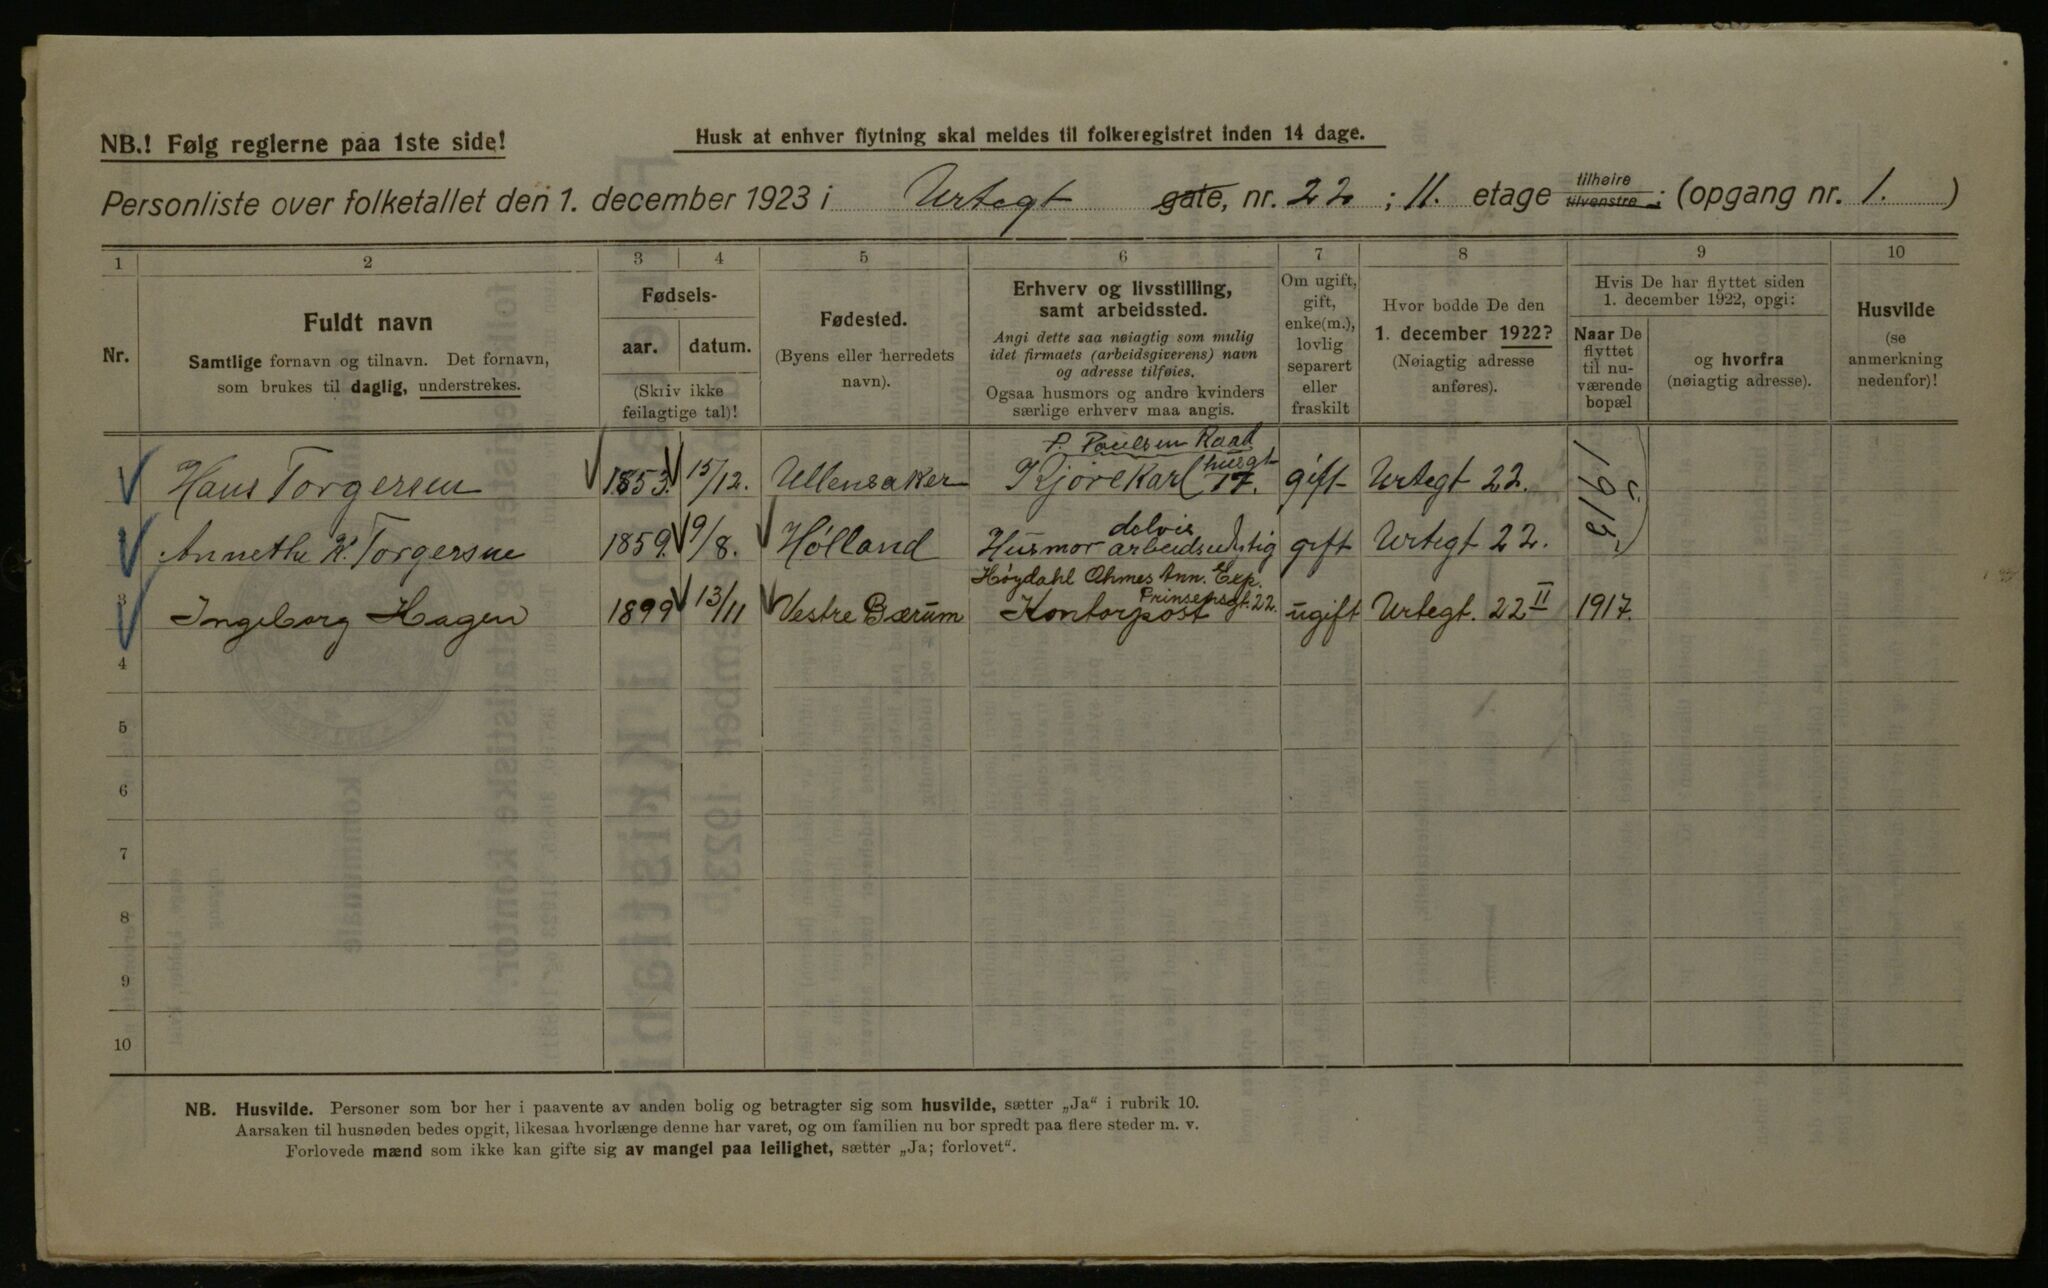 NB.! Følg reglerne paa 1ste side!
Husk at enhver flytning skal meldes til folkeregistret inden 14 dage.
Personliste over folketallet den 1. december 1923 i Urtegt gate, nr. 22 ; 11. etage tilhøire tilvenstre ; (opgang nr. 1. )
1 2 3 4 5 6 7 8 9 10
Nr.
Fuldt navn
Samtlige fornavn og tilnavn. Det fornavn,
som brukes til daglig, understrekes.
Fødsels-
aar. datum.
(Skriv ikke
feilagtige tal)!
Fødested.
(Byens eller herredets
navn).
Erhverv og livsstilling,
samt arbeidssted.
Angi dette saa nøiagtig som mulig
idet firmaets (arbeidsgiverens) navn
og adresse tilføies.
Ogsaa husmors og andre kvinders
særlige erhverv maa angis.
Om ugift,
gift,
enke(m.),
lovlig
separert
eller
fraskilt
Hvor bodde De den
1. december 1922?
(Nøiagtig adresse
anføres).
Hvis De har flyttet siden
1. december 1922, opgi:
Naar De
flyttet
til nu-
værende
bopæl
og hvorfra
(nøiagtig adresse).
Husvilde
(se
anmerkning
nedenfor)!
P. Poulsen Raad
husgt
Hans Torgersen 1853. 15/12. Ullensaker Kjørekarl 17. gift Urtegt 22. 1915
delvis
Annethe K. Torgersne 1859. 9/8. Hølland Husmor arbeidsudygtig gift Urtegt 22.
Høydahl Ohmes Ann. Exp.
Prinsensgt. 22.
3 Ingeborg Hagen 1899 13/11 Vestre Bærum Kontorpost ugift Urtegt. 22 II 1917.
4
5
6
7
8
9
10
NB. Husvilde. Personer som bor her i paavente av anden bolig og betragter sig som husvilde, sætter „Ja“ i rubrik 10.
Aarsaken til husnøden bedes opgit, likesaa hvorlænge denne har varet, og om familien nu bor spredt paa flere steder m. v.
Forlovede mænd som ikke kan gifte sig av mangel paa leilighet, sætter „Ja; forlovet“.